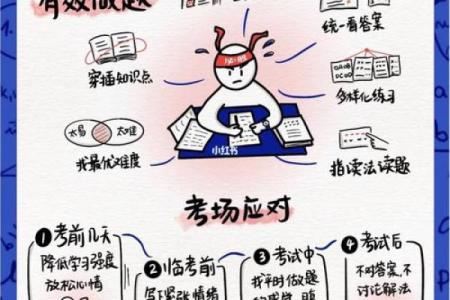 有效做题
统一看答案
穿插知识点
必胜
多样化练习
太易
太难
找最优难度
小红书
指读法读题
考场应对
1 考前几天
降低学习强度
放松心情
2 临考前
写下紧张情绪
3 考试中
找平时做题
4 考试后
不对答案,不
讨论解法